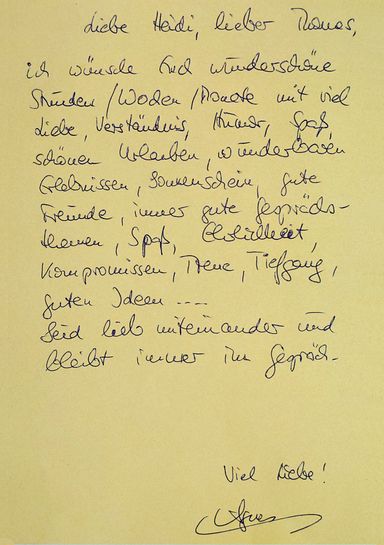 Liebe Heidi, lieber Thomas,
ich wünsche Euch wunderschöne
Stunden / Wochen / Monate mit viel
Liebe, Verständnis, Humor, Spaß,
schönen Urlauben, wunderbaren
Erlebnissen, Sonnenschein, gute
Freunde, immer gute Gesprächs-
themen, Spaß, Ehrlichkeit,
Kompromissen, Treue, Tiefgang,
guten Ideen ....
Seid lieb miteinander und
bleibt immer im Gespräch.
Viel Liebe!